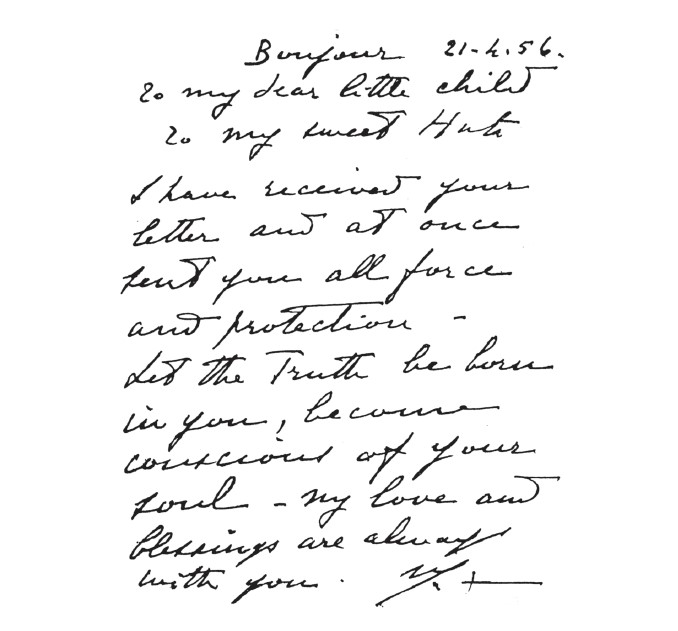 Bonjour 21-4.56.
To my dear little child
To my sweet Huta
I have received your
letter and at once
sent you all force
and protection -
Let the Truth be born
in you, become
conscious of your
soul - my love and
blessings are always
with you.